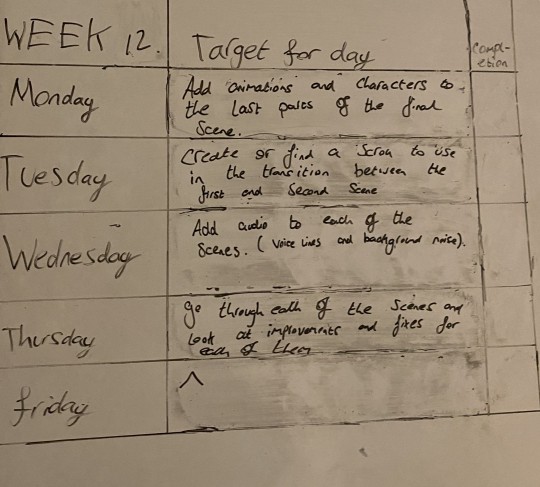 WEEK 12.
Target for day
Compl-
etion
Monday
Add animations and characters to
the last parts of the final
Scene.
Tuesday
Create or find a Scroll to use
in the transition between the
first and Second Scene
Wednesday
Add audio to each of the
Scenes. (voice lines and background noise).
Thursday
Go through each of the Scenes and
look at improvements and fixes for
each of them
Friday
^